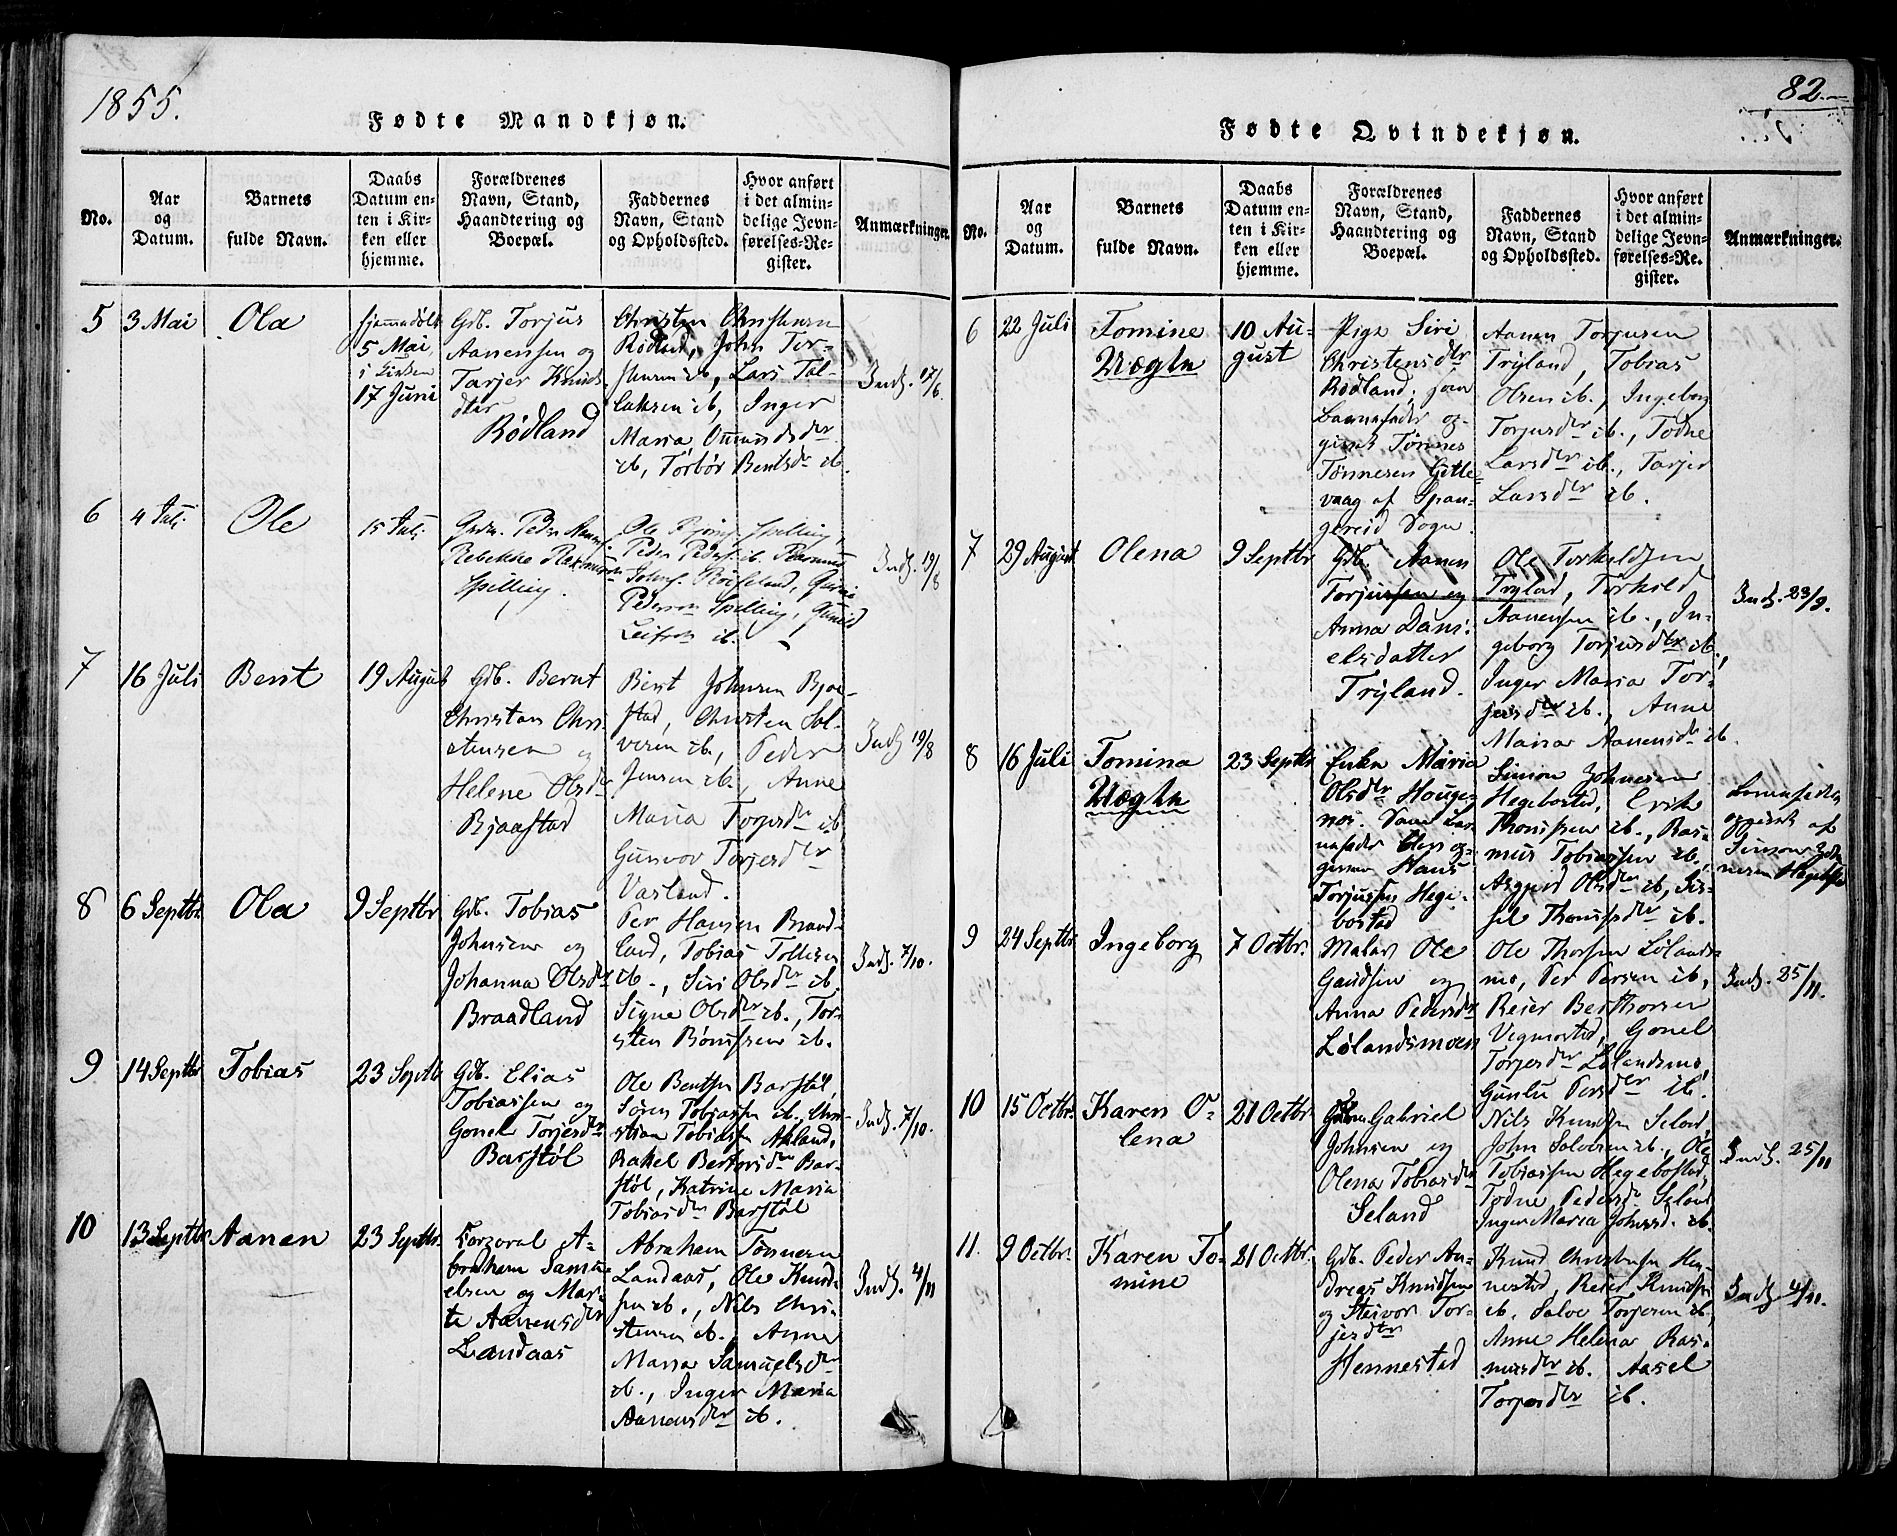 1855.
Fødte Mandkjøn.
No.
Aar
og
Datum.
Barnets
fulde Navn.
Daabs
Datum en-
ten i Kir-
ken eller
hjemme.
Forældrenes
Navn, Stand,
Haandtering og
Boepæl.
Faddernes
Navn, Stand
og Opholdssted.
Hvor anført
i det almin-
delige Jevn-
førelses-Re-
gister.
Anmærkninger.
5
3 Mai
Ola
hjemmedøbt
5 Mai
i Kirken
17 Juni
Gdb. Torjus
Aanensen og
Tarjer Knuds-
dter
Rødland
Christen Christensen
Rødland, John Tor-
jusen ib, Lars Tol-
laksen ib, Inger
Maria Omundsdr
ib, Torbor Bentsdr ib.
Inds. 17/6.
6
4 Juli
Ole
15 Juli
Peder
Rebekke
Spilling.
Ole Spilling,
Peder Peders. ib.
Johns. Røiseland,
Pedersen Spilling, Gunild
Leifsen ib.
Inds. 19/8
7
16 Juli
Bent
19 August
Gdb. Bernt
Christian Chri-
stensen og
Helene Olsdr
Bjaastad
Bent Johnsen Bjaa-
stad, Christen Sal-
vesen ib., Peder
Jensen ib., Anne
Maria Torjersdr ib
Gunvor Torjersdr
Vasland.
Inds 19/8
8
6 Septbr
Ola
9 Septbr
Gdb. Tobias
Johnsen og
Johanna Olsdr
Braadland
Per Hansen Braad-
land, Tobias Tollisen
ib., Siri Olsdr ib.
Signe Olsdr ib., Tor-
sten Bønsen ib.
Inds. 7/10.
9
14 Septbr
Tobias
23 Septbr
Gdb. Elias
Tobiassen og
Gonel Torjersdr
Barstøl
Ole Bentsen Barstøl,
Søren Tobiassen ib., Chri-
stian Tobiassen Ahland,
Rakel Berntsdr Bar-
støl, Katrine Maria
Tobiasdr Barstøl
Inds. 7/10.
10
13 Septbr
Aanen
23 Septbr.
Corporal A-
braham Samu-
elsen og Mar-
te Aanensdr
Landaas
Abraham Tønnesen
Landaas, Ole Knud-
sen ib., Nils Chri-
stensen ib., Anne
Maria Samuelsdr
ib., Inger Maria
Aanensdr ib.
Inds. 4/11
82.
Fødte Qvindekjøn.
No.
Aar
og
Datum.
Barnets
fulde Navn.
Daabs
Datum en-
ten i Kir-
ken eller
hjemme.
Forældrenes
Navn, Stand,
Haandtering og
Boepæl.
Faddernes
Navn, Stand
og Opholdssted.
Hvor anført
i det almin-
delige Jevn-
førelses-Re-
gister.
Anmærkninger.
6
22 Juli
Tomine
Uægte
10 Au-
gust
Pige Siri
Christensdr
Rødland, som
Barnefader op-
givet Tønnes
Tønnesen Gitle-
vaag af Span-
gereid Sogn.
Aanen Torjusen
Tryland, Tobias
Olsen ib., Ingeborg
Torjusdr ib., Todne
Larsdr ib., Tarjer
Larsdr ib.
7
29 August
Olena
9 Septbr
Gdb. Aanen
Torjussen og
Anna Dani-
elsdatter
Tryland.
Ole Torkeldsen
Trylad, Torkild
Aanensen ib., In-
geborg Torjusdr ib.,
Inger Maria Tor-
jusdr ib., Anne
Maria Aanensdr ib.
Inds. 23/9.
8
16 Juli
Tomina
Uægte
23 Septbr
Enke Maria
Olsdr Houge-
nes. Som Bar-
nefader blev op-
given Hans
Torjussen Hege-
bostad
Simon Johnesen
Hegebostad, Erik
Thomssen ib., Ras-
mus Tobiassen ib.,
Asgjerd Olsdr ib, Sis-
sel Thomsdr ib.
Barnefader
opgivet af
Simon Joh-
nesen Hegebostad
9
24 Septbr
Ingeborg
7 Octbr.
Maler Ole
Gaudsen og
Anna Pedersdr
Lølandsmoen
Ole Thorsen Lølands-
mo, Per Persen ib.,
Reier Berthorsen
Vegmostad, Gonel
Torjersdr Lølandsmo,
Gunlu Persdr ib.
Inds. 25/11.
10
15 Octbr.
Karen O-
lena
21 Octbr
Gabriel
Johnsen og
Olena Tobiasdr
Seland
Nils Knudsen Seland,
John Salvesen ib., Ole
Tobiassen Hegebostad,
Todne Pedersdr Seland
Inger Maria Johnsd. ib.
Inds. 25/11
11.
9 Octbr.
Karen To-
mine
21 Octbr.
Gdb. Peder An-
dreas Knudsen
og Steivor Tor-
jersdtr
Hennestad
Knud Christensen Hen-
nestad, Reier Knudsen
ib. Salve Torjersen ib.,
Anne Helena Ras-
musdr ib. Aasel
Torjersdr ib.
Inds. 4/11.